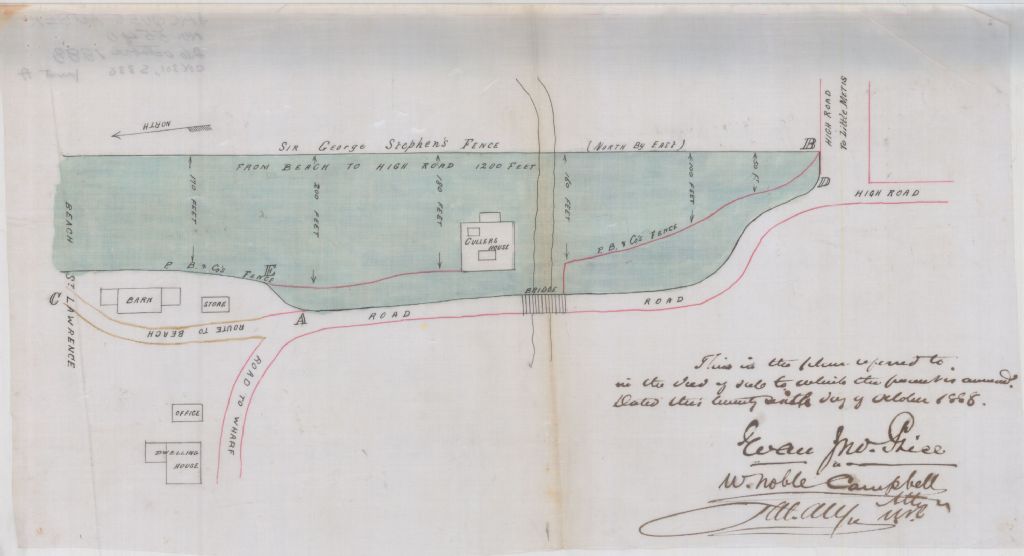 NORTH
SIR GEORGE STEPHEN'S FENCE (NORTH BY EAST)
FROM BEACH TO HIGH ROAD 1200 FEET
B
HIGH ROAD
TO LITTLE METIS
D
HIGH ROAD
170 FEET
200 FEET
180 FEET
160 FEET
BEACH
ST. LAWRENCE
CULLERS
HOUSE
P. B. & Co's FENCE
P. B. & Co's FENCE
E
C
BARN
STORE
A
ROAD
BRIDGE
ROAD
ROUTE TO BEACH
ROAD TO WHARF
OFFICE
DWELLING
HOUSE
This is the plan referred to
in the deed of sale to which the present is annexed.
Dated this twenty sixth day of October 1888.
Evan Jno. Price
W. Noble Campbell